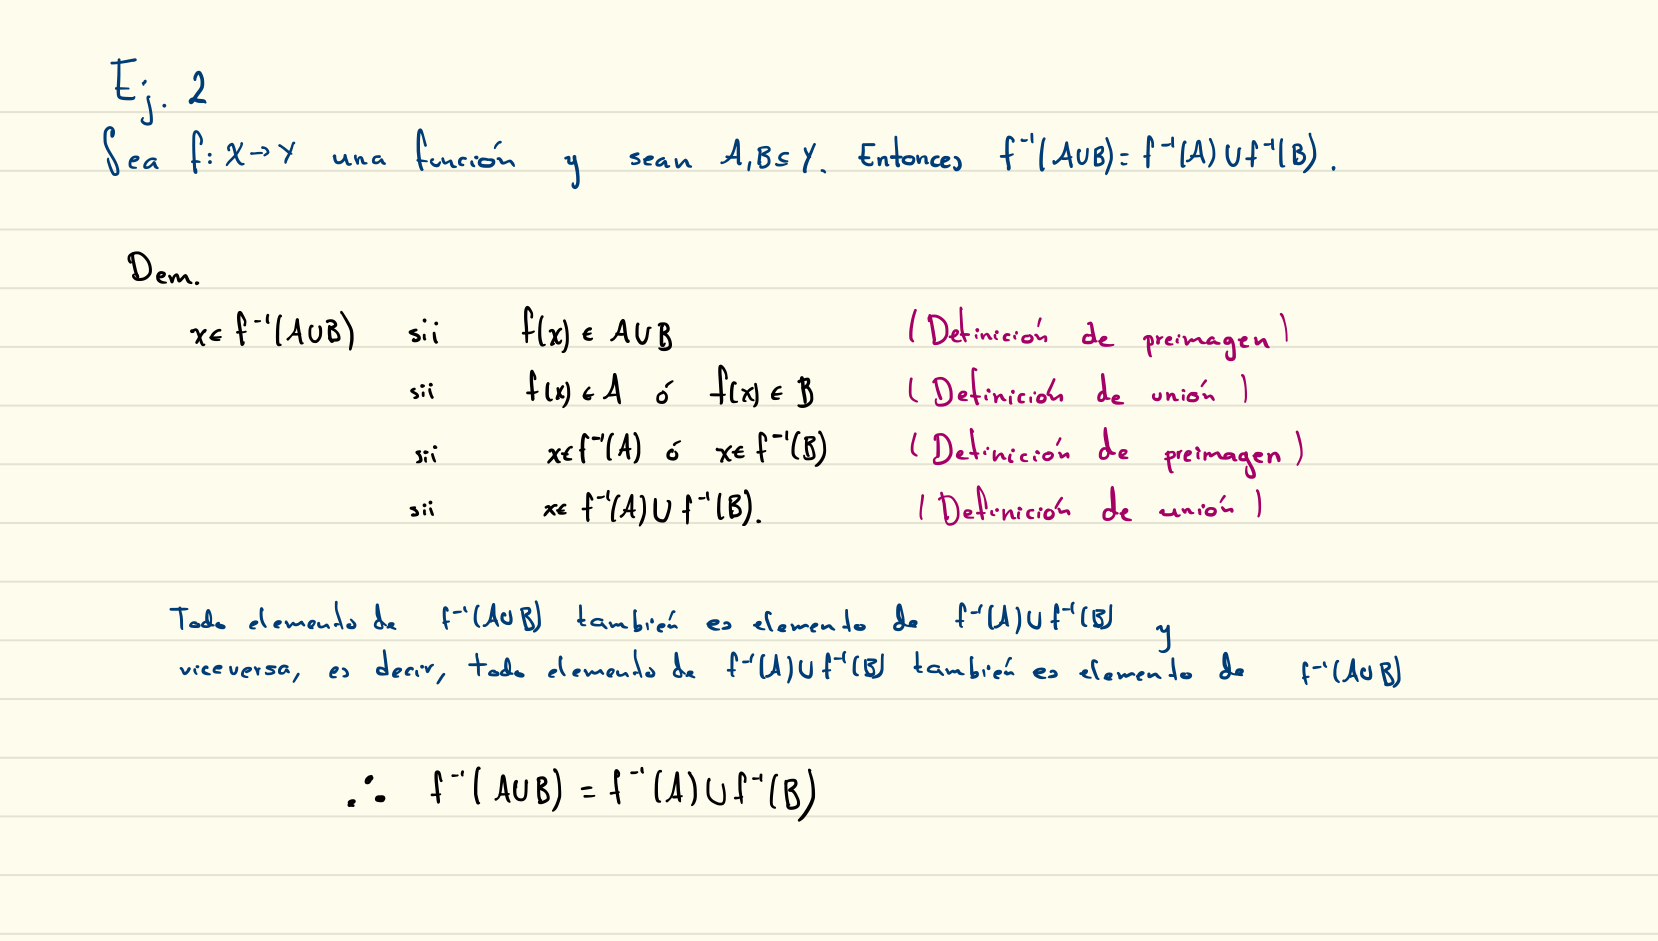 Ej. 2
Sea f: X → Y una función y sean A, B ⊆ Y. Entonces f⁻¹(A∪B) = f⁻¹(A) ∪ f⁻¹(B).
Dem.
x ∈ f⁻¹(A∪B) sii f(x) ∈ A∪B (Definición de preimagen)
sii f(x) ∈ A ó f(x) ∈ B (Definición de unión)
sii x ∈ f⁻¹(A) ó x ∈ f⁻¹(B) (Definición de preimagen)
sii x ∈ f⁻¹(A) ∪ f⁻¹(B). (Definición de unión)
Todo elemento de f⁻¹(A∪B) también es elemento de f⁻¹(A) ∪ f⁻¹(B) y
viceversa, es decir, todo elemento de f⁻¹(A) ∪ f⁻¹(B) también es elemento de f⁻¹(A∪B)
∴ f⁻¹(A∪B) = f⁻¹(A) ∪ f⁻¹(B)